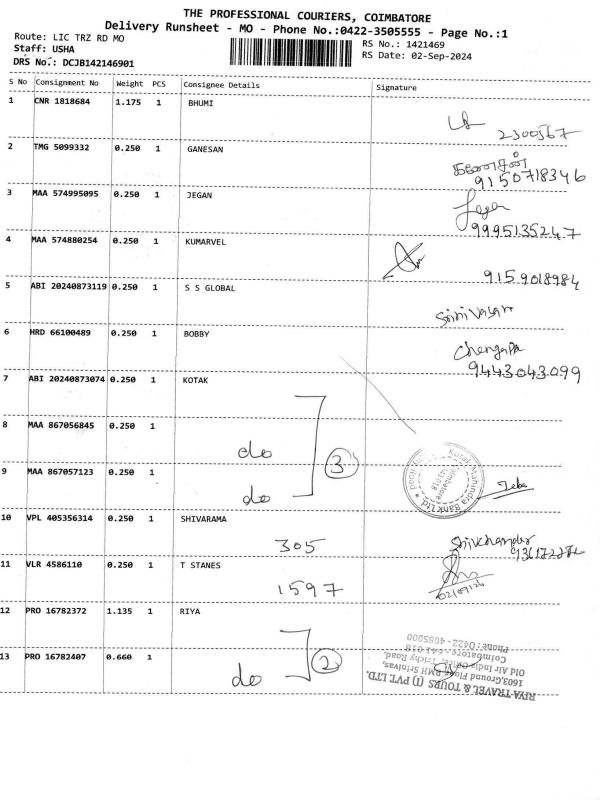 THE PROFESSIONAL COURIERS, COIMBATORE
Delivery Runsheet - MO - Phone No.:0422-3505555 - Page No.:1
Route: LIC TRZ RD MO
RS No.: 1421469
Staff: USHA
RS Date: 02-Sep-2024
DRS No.: DCJB142146901
S No Consignment No Weight PCS Consignee Details Signature
1 CNR 1818684 1.175 1 BHUMI
2300567
2 TMG 5099332 0.250 1 GANESAN கணேசன்
9150718346
3 MAA 574995095 0.250 1 JEGAN Jegan
9995135247
4 MAA 574880254 0.250 1 KUMARVEL
9159018984
5 ABI 20240873119 0.250 1 S S GLOBAL
Srinivasan
6 HRD 66100489 0.250 1 BOBBY
9443043099
7 ABI 20240873074 0.250 1 KOTAK
8 MAA 867056845 0.250 1 do
3
9 MAA 867057123 0.250 1 do
Kotak Mahindra Bank Ltd.
Coimbatore
641018
10 VPL 405356314 0.250 1 SHIVARAMA
305
11 VLR 4586110 0.250 1 T STANES
1597
12 PRO 16782372 1.135 1 RIYA
2
13 PRO 16782407 0.660 1 do
RIYA TRAVEL & TOURS (I) PVT. LTD.
1603,Ground Floor, RMH Srinivas,
Old Air India Office, Trichy Road,
Coimbatore - 641 018
Phone : 0422 - 4085000